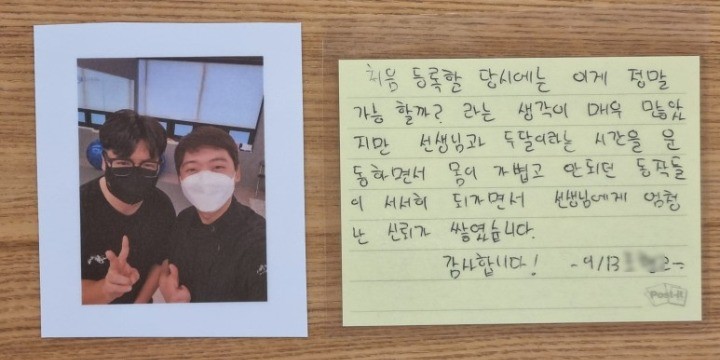 처음 등록할 당시에는 이게 정말
가능 할까? 라는 생각이 매우 많았
지만 선생님과 두달이라는 시간을 운
동하면서 몸이 가볍고 안되던 동작들
이 서서히 되가면서 선생님에게 엄청
난 신뢰가 쌓였습니다.
감사합니다! - 9/13
Post-it